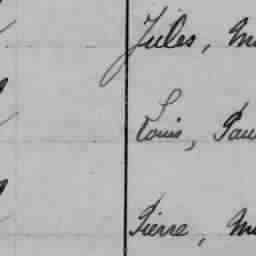 Jules, M
Louis, Pau
Pierre, M